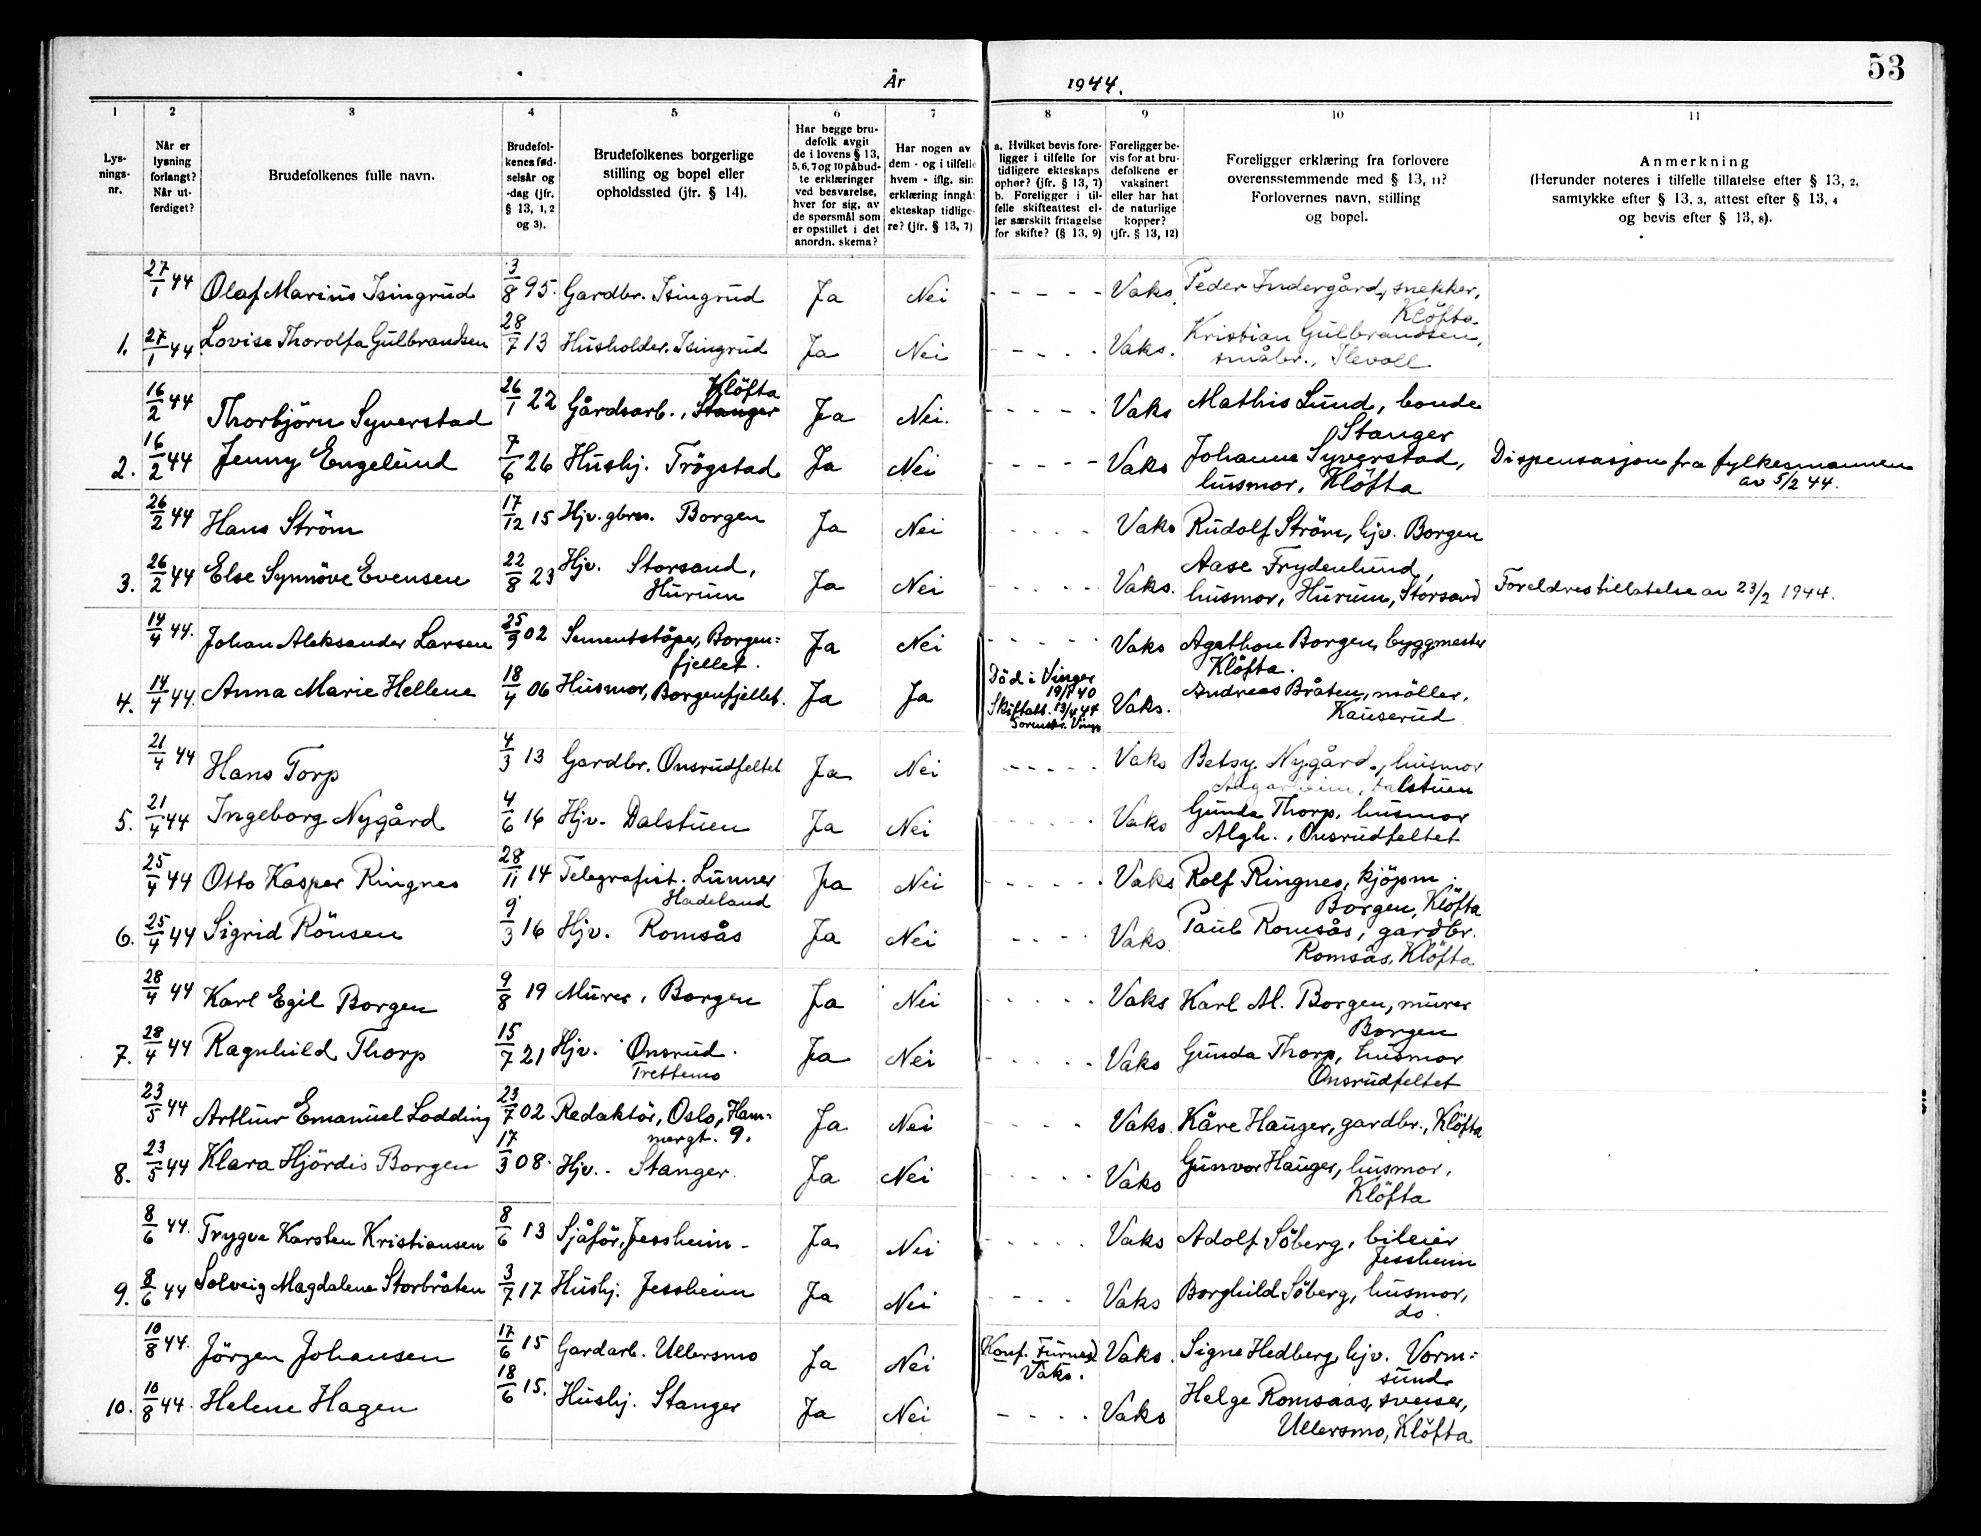 53
År 1944.
1 2 3 4 5 6 7 8 9 10 11
Lys-
nings-
nr.
Når er
lysning
forlangt?
Når ut-
ferdiget?
Brudefolkenes fulle navn.
Brudefol-
kenes fød-
selsår og
-dag (jfr.
§ 13, 1, 2
og 3).
Brudefolkenes borgerlige
stilling og bopel eller
opholdssted (jfr. § 14).
Har begge bru-
defolk avgit
de i lovens § 13,
5, 6, 7 og 10 påbud-
te erklæringer
ved besvarelse,
hver for sig, av
de spørsmål som
er opstillet i det
anordn. skema?
Har nogen av
dem - og i tilfelle
hvem - iflg. sin
erklæring inngå
ekteskap tidlige-
re? (jfr. § 13, 7)
a. Hvilket bevis fore-
ligger i tilfelle for
tidligere ekteskaps
ophør? (jfr. § 13, 7)
b. Foreligger i til-
felle skifteattest el-
ler særskilt fritagelse
for skifte? (§ 13, 9)
Foreligger be-
vis for at bru-
defolkene er
vaksinert
eller har hat
de naturlige
kopper?
(jfr. § 13, 12)
Foreligger erklæring fra forlovere
overensstemmende med § 13, 11?
Forlovernes navn, stilling
og bopel.
Anmerkning
(Herunder noteres i tilfelle tillatelse efter § 13, 2,
samtykke efter § 13, 3, attest efter § 13, 4
og bevis efter § 13, 8).
27/1 44 Olaf Marius Isingrud 3/8 95. Gardbr. Isingrud Ja Nei - - - - - Vaks. Peder Indergård, snekker,
Klöfta.
1. 27/1 44 Lovise Thorolfa Gulbrandsen 28/7 13 Husholder. Isingrud Ja Nei - - - - Vaks. Kristian Gulbrandsen,
småbr., Ilevoll
16/2 44 Thorbjörn Syverstad 26/1 22 Gårdsarb., Stanger Klöfta Ja Nei. - - - - - Vaks Mathis Lund, bonde
Stanger
2. 16/2 44 Jenny Engelund 7/6 26 Hushj. Trögstad Ja Nei - - - - - Vaks Johanne Syverstad,
husmor, Klöfta
Dispensasjon fra fylkesmannen
av 5/2 44.
26/2 44 Hans Ström 17/12 15 Hjv. gbrs. Borgen Ja Nei - - - - Vaks Rudolf Ström, hjv. Borgen
3. 26/2 44 Else Synnöve Evensen 22/8 23 Hjv. Storsand,
Hurum Ja Nei - - - - Vaks. Aase Frydenlund,
husmor, Hurum, Storsand
Foreldrestillatelse av 23/2 1944.
14/4 44. Johan Aleksander Larsen 25/9 02 Sementstöper, Borgen=
fjellet. Ja Nei - - - - - Vaks Agathon Borgen, byggmester
Klöfta.
4. 14/4 44. Anna Marie Hellene 18/4 06 Husmor, Borgenfjellet. Ja Ja Död i Vinger
19/1 40
Skiftatt. 13/4 44
Vaks. Andreas Bråten, möller,
Kauserud
21/4 44 Hans Torp 4/3 13 Gardbr. Onsrudfeltet Ja Nei - - - - - Vaks Betsy Nygård, husmor
Dalstuen
5. 21/4 44 Ingeborg Nygård 4/6 16 Hjv. Dalstuen Ja Nei - - - - - Vaks Gunda Thorp, husmor
Algh., Onsrudfeltet
25/4 44 Otto Kasper Ringnes 28/11 14 Telegrafist. Lunner
Hadeland Ja Nei - - - - - Vaks Rolf Ringnes, kjöpm.
Borgen, Klöfta
6. 25/4 44 Sigrid Rönsen 9/3 16 Hjv. Romsås Ja Nei - - - - Vaks. Paul Romsås, gardbr.
Romsås, Klöfta
28/4 44 Karl Egil Borgen 9/8 19 Murer, Borgen Ja Nei - - - - - Vaks Karl Al. Borgen, murer
Borgen
7. 28/4 44 Ragnhild Thorp 15/7 21 Hjv. Onsrud.
Trettemo Ja Nei - - - - - Vaks Gunda Thorp, husmor
Onsrudfeltet
23/5 44 Arthur Emanuel Lodding 23/7 02 Redaktör, Oslo, Ham-
mergt. 9. Ja Nei - - - - Vaks. Kåre Hauger, gardbr., Klöfta
8. 23/5 44 Klara Hjördis Borgen 17/3 08. Hjv. - Stanger. Ja Nei - - - - - Vaks Gunvor Hauger, husmor,
Klöfta
8/6 44. Trygve Karsten Kristiansen 8/6 13 Sjåför, Jessheim - Ja Nei - - - - - Vaks Adolf Söberg, bileier
Jessheim
9. 8/6 44 Solveig Magdalene Storbråten 3/7 17 Hushj. Jessheim Ja Nei - - - - Vaks Borghild Söberg, husmor,
do.
10/8 44. Jörgen Johansen 17/6 15 Gardarb. Ullersmo Ja Nei (Konf. Furnes)
Vaks.
Vaks. Signe Hedberg, hjv. Vorm=
sund
10. 10/8 44. Helene Hagen 18/6 15. Hushj. Stanger Ja Nei - - - - Vaks Helge Romsaas, sveiser,
Ullersmo, Klöfta